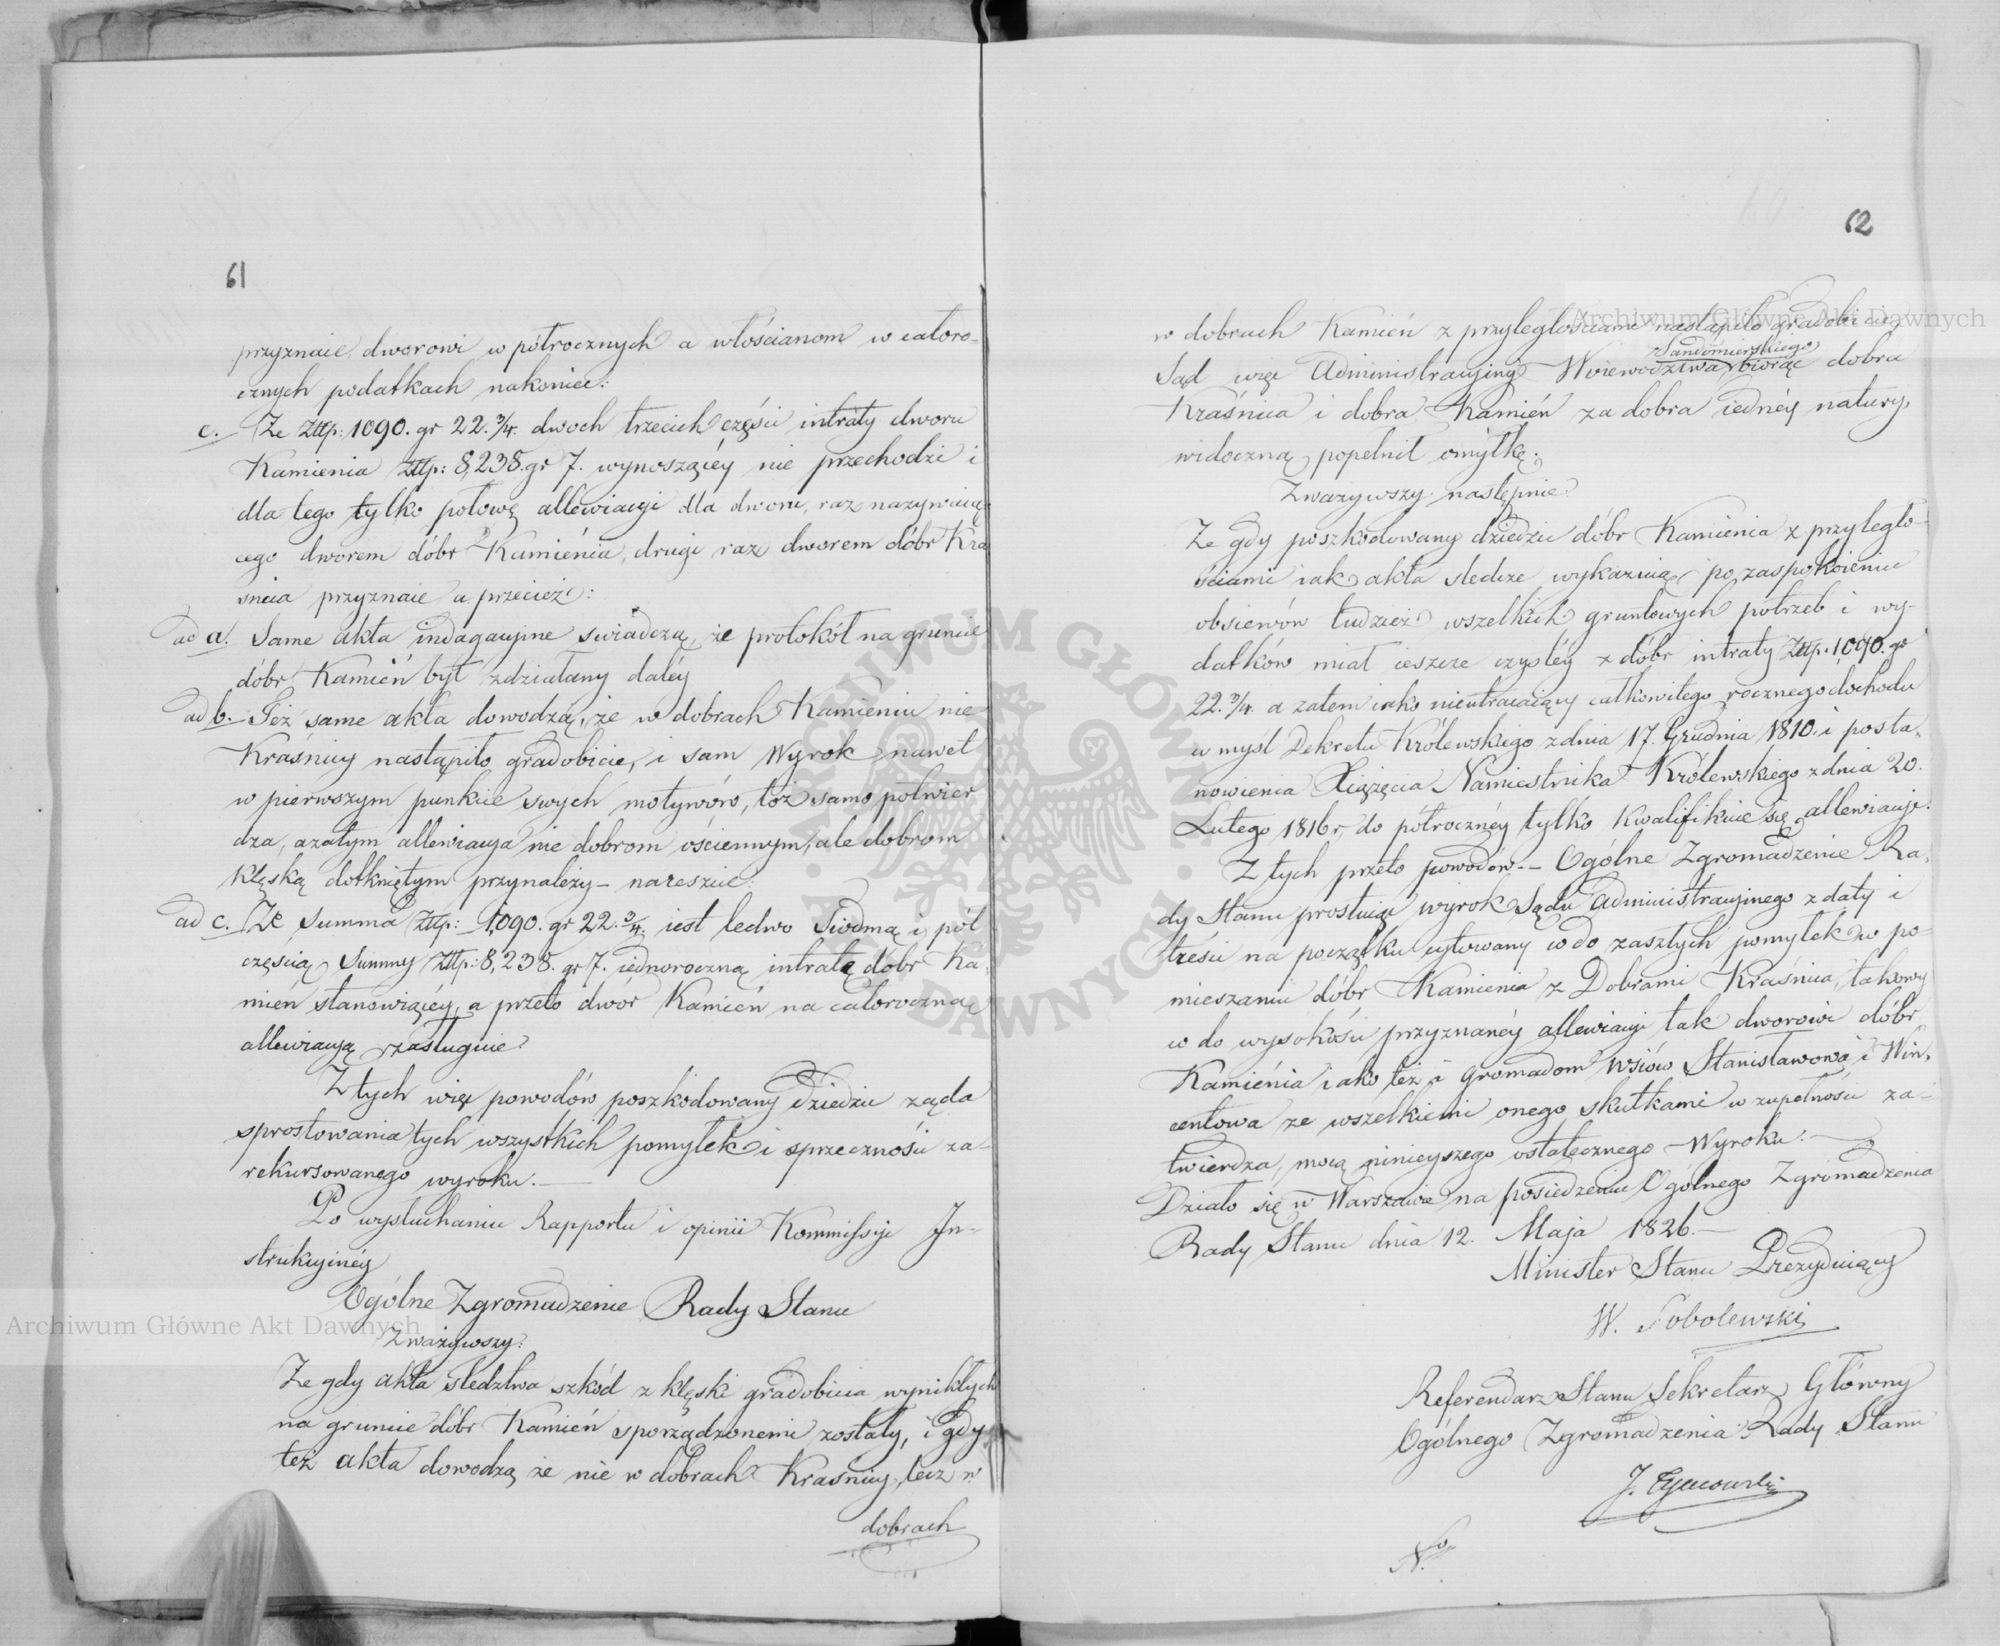 61
przyznaie dworowi w półrocznych a włościanom w całoro-
cznych podatkach nakoniec:
c. Że Złtp: 1090. gr 22.¾. dwoch trzecich części intraty dworu
Kamienia Złtp: 8,238. gr 7. wynoszącéy nie przechodzi i
dla tego tylko połowę allewiacyi dla dworu, raz nazywaią-
cego dworem dóbr Kamiénia, drugi raz dworem dóbr Kra
śnica przyznaie a przecież:
ad a. Same akta indagacyjne świadczą, że protokół na gruncie
dóbr Kamień był zdziałany daléy
ad b. Też same akta dowodzą, że w dobrach Kamieniu nie
Kraśnicy nastąpiło gradobicie, i sam Wyrok nawet
w pierwszym punkcie swych motywów, toż samo potwier
dza, azatym allewiacya nie dobrom ościennym, ale dobrom
klęską dotkniętym przynależy – nareszcie:
ad c. Że Summa Złtp: 1,090. gr 22.¾. iest ledwo Siódmą i pół
częścią Summy Złtp: 8,238. gr 7. iednoroczną intratę dóbr Ka-
mień stanowiącéy, a przeto dwór Kamień na całoroczną
allewiacyą zasługuie.
Z tych więc powodów poszkodowany Dziedzic żąda
sprostowania tych wszystkich pomyłek i sprzeczności za-
rekursowanego wyroku. —
Po wysłuchaniu Rapportu i opinii Kommissyi In-
strukcyjnéy
Ogólne Zgromadzenie Rady Stanu
Zważywszy:
Że gdy akta śledztwa szkód z klęski gradobicia wynikłych
na gruncie dóbr Kamień sporządzonemi zostały, i gdy
też akta dowodzą że nie w dobrach Kraśnicy, lecz w
dobrach
62
w dobrach Kamień z przyległościami nastąpiło gradobicie,
Sandomierskiego
Sąd więc Administracyjny Woiewództwa biorąc dobra
Kraśnica i dobra Kamień za dobra iednéy natury,
widoczną popełnił omyłkę.
Zważywszy następnie:
Że gdy poszkodowany dziedzic dóbr Kamienia z przyległo-
ściami iak akta śledcze wykazuią, po zaspokoieniu
obsiewów tudzież wszelkich gruntowych potrzeb i wy-
datków miał ieszcze czystéy z dóbr intraty Złtp. 1,090. gr
22.¾. a zatem iako nieutracaiący całkowitego rocznego dochodu
w myśl Dekretu Królewskiego z dnia 17. Grudnia 1810. i posta-
nowienia Xiążęcia Namiestnika Królewskiego z dnia 20.
Lutego 1816 r. do półrocznéy tylko kwalifikuie się allewiacyi.
Z tych przeto powodów. – Ogólne Zgromadzenie Ra-
dy Stanu prostuiąc wyrok Sądu Administracyjnego z daty i
treści na początku cytowany co do zaszłych pomyłek w po-
mieszaniu dóbr Kamienia z Dobrami Kraśnica, takowy
co do wysokości przyznanéy allewiacyi tak dworowi dóbr
Kamiénia iako też i gromadom Wsiów Stanisławowa i Win-
centowa ze wszelkiemi onego skutkami w zupełności za-
twierdza, mocą ninieyszego ostatecznego Wyroku. —
Działo się w Warszawie na posiedzeniu Ogólnego Zgromadzenia
Rady Stanu dnia 12. Maja 1826. —
Minister Stanu Prezyduiący
W. Sobolewski
Referendarz Stanu Sekretarz Główny
Ogólnego Zgromadzenia Rady Stanu
J.
No
Archiwum Główne Akt Dawnych
Archiwum Główne Akt Dawnych
ARCHIWUM GŁÓWNE AKT DAWNYCH